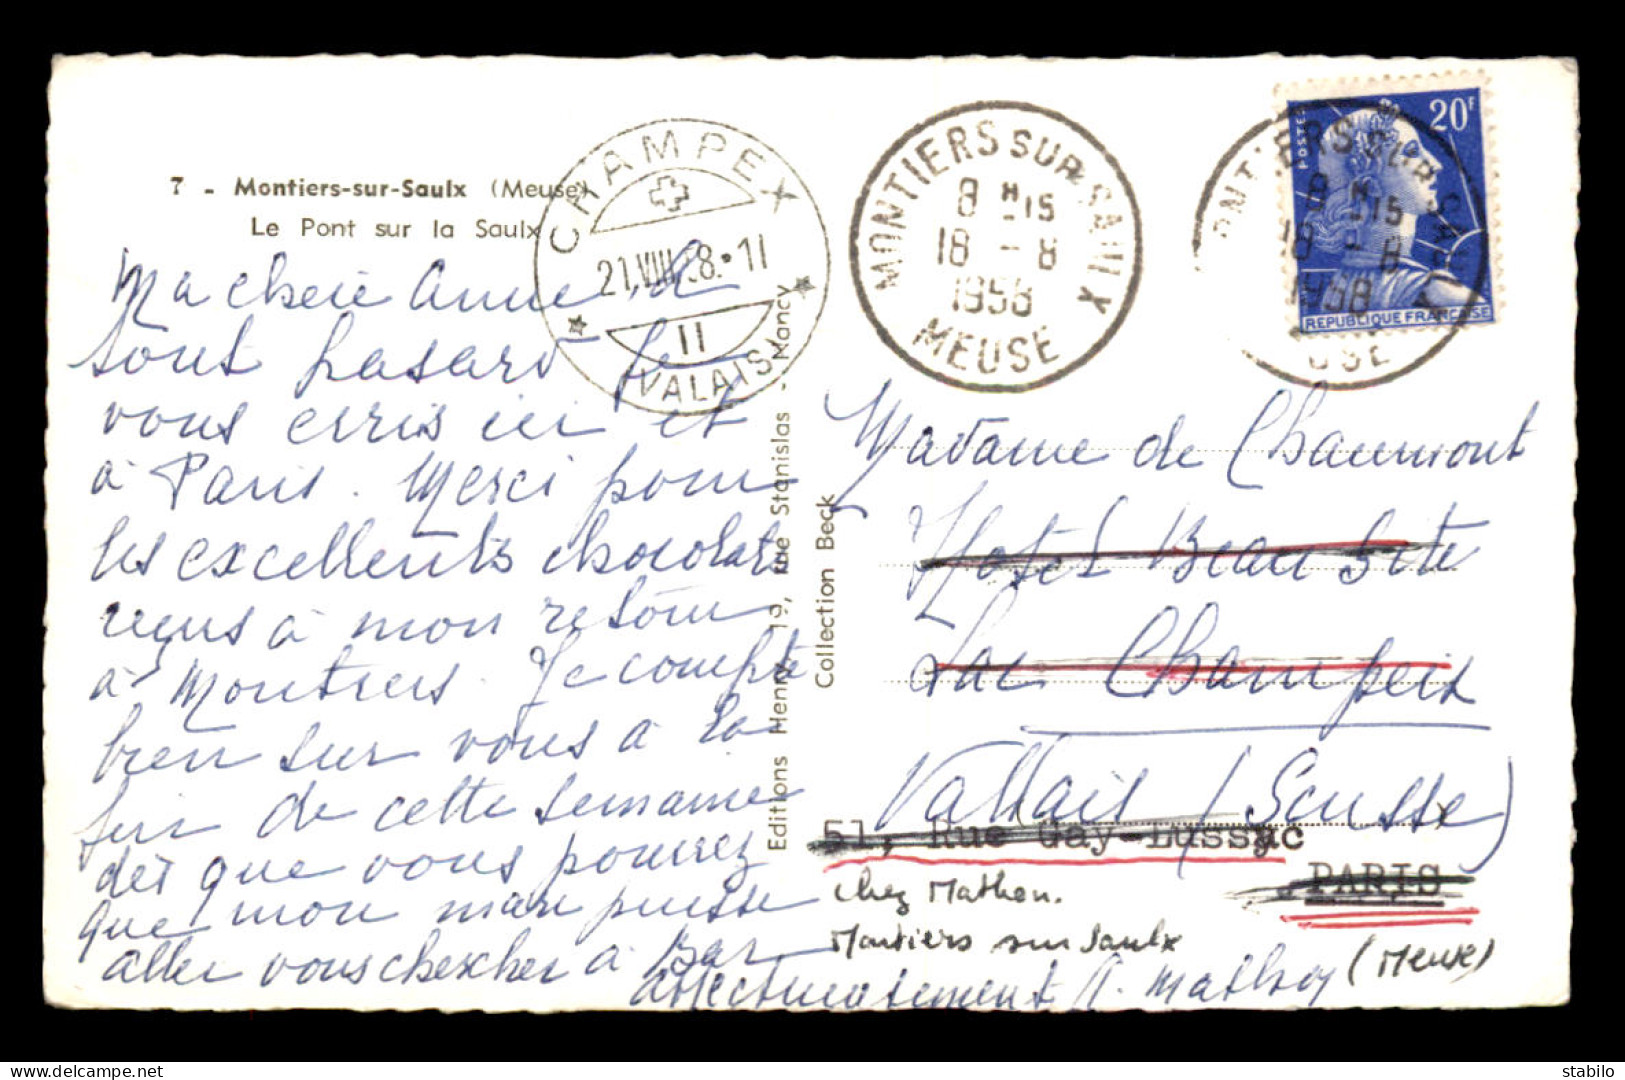 7 - Montiers-sur-Saulx (Meuse)
Le Pont sur la Saulx
CHAMPEX
21.VIII. 8.-11
II
(VALAIS)
MONTIERS SUR SAULX
8 H 15
18 - 8
1958
MEUSE
ONTIERS SUR SAULX
8 H 15
18 - 8
1958
USE
POSTES
20F
REPUBLIQUE FRANÇAISE
Ma chere Anne, à
tout hasard je
vous ecris ici et
à Paris. Merci pour
les excellents chocolats
reçus à mon retour
à Montiers. Je compte
bien sur vous à la
fin de cette semaine
dès que vous pourrez
que mon mari puisse
aller vous chercher à Bar
affectueusement A. Mathon
Editions Henry - 19, Rue Stanislas - Nancy
Collection Beck
Madame de Chaumont
Hotel Beau Site
Lac Champeix
Vallais (Suisse)
51, Rue Gay-Lussac
PARIS
chez Mathon.
Montiers sur Saulx
(Meuse)
delcampe.net
stabilo